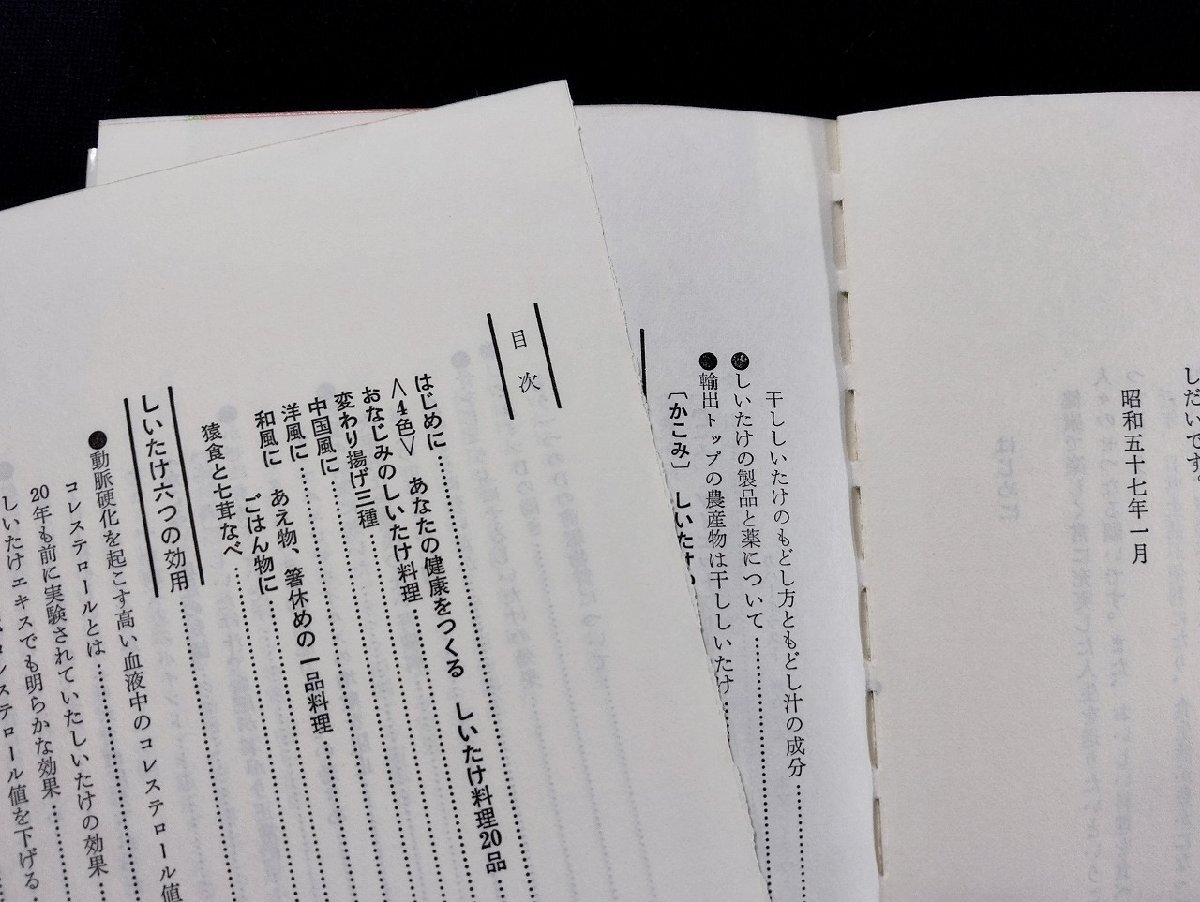 しだいです。
昭和五十七年一月
干ししいたけのもどし方ともどし汁の成分
●しいたけの製品と薬について
●輸出トップの農産物は干ししいたけ
〔かこみ〕　しいたけ
目次
はじめに
〈4色〉　あなたの健康をつくる　しいたけ料理20品
おなじみのしいたけ料理
変わり揚げ三種
中国風に
洋風に
和風に　あえ物、箸休めの一品料理
ごはん物に
猿食と七茸なべ
しいたけ六つの効用
●動脈硬化を起こす高い血液中のコレステロール値
コレステロールとは
20年も前に実験されていたしいたけの効果
しいたけエキスでも明らかな効果
コレステロール値を下げる